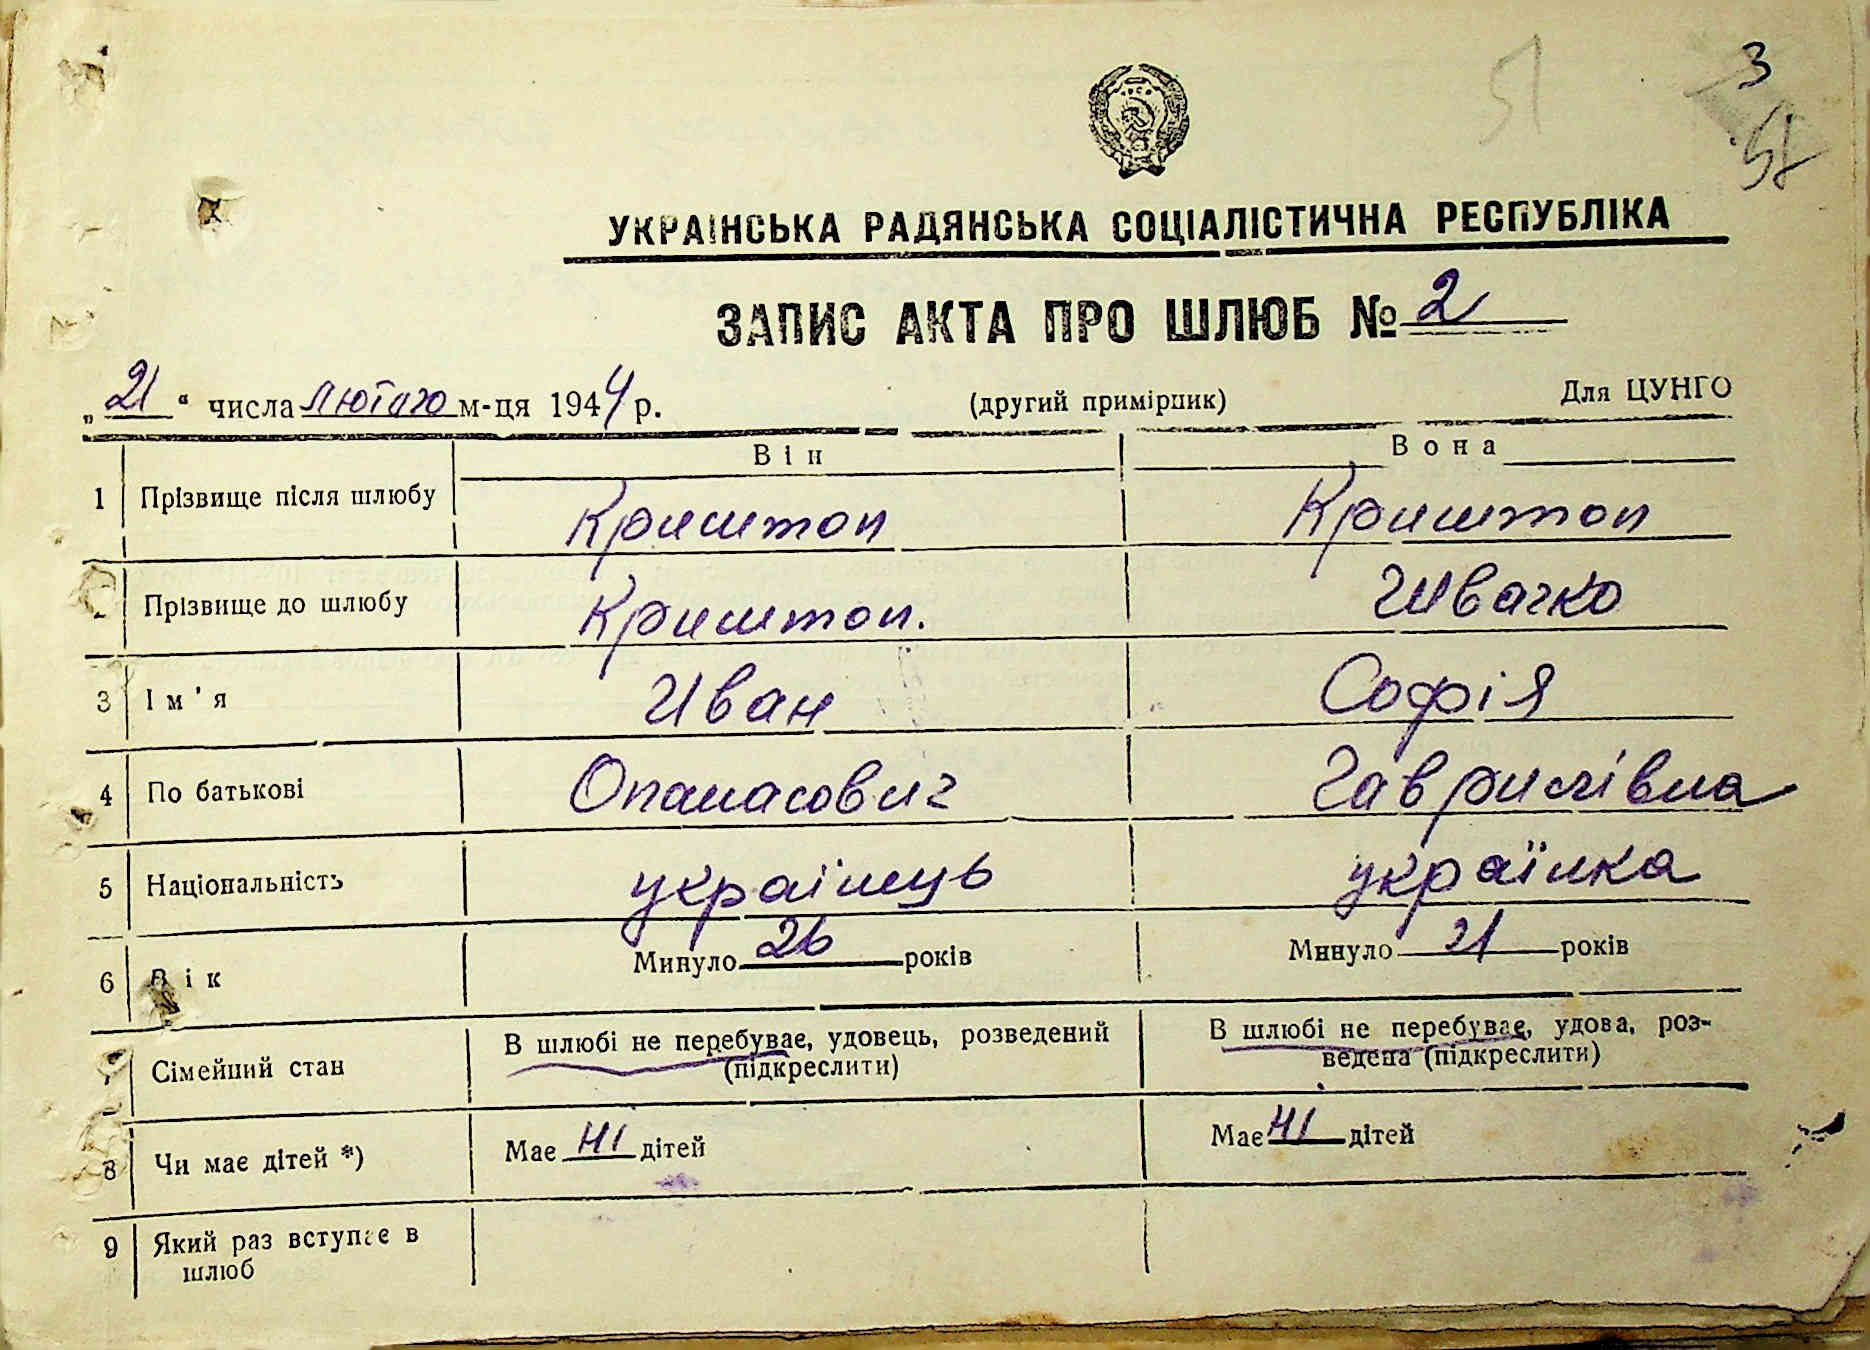 51
3
УКРАЇНСЬКА РАДЯНСЬКА СОЦІАЛІСТИЧНА РЕСПУБЛІКА
ЗАПИС АКТА ПРО ШЛЮБ № 2
„21“ числа лютого м-ця 1944 р. (другий примірник) Для ЦУНГО
Він Вона
1 Прізвище після шлюбу Криштоп Криштоп
Прізвище до шлюбу Криштоп. Швачко
3 Ім'я Иван Софія
4 По батькові Опанасович Гаврилівна
5 Національність українець українка
6 Вік Минуло 26 років Минуло 21 років
7 Сімейний стан В шлюбі не перебуває, удовець, розведений (підкреслити) В шлюбі не перебуває, удова, роз-
ведена (підкреслити)
8 Чи має дітей *) Має ні дітей Має ні дітей
9 Який раз вступає в
шлюб